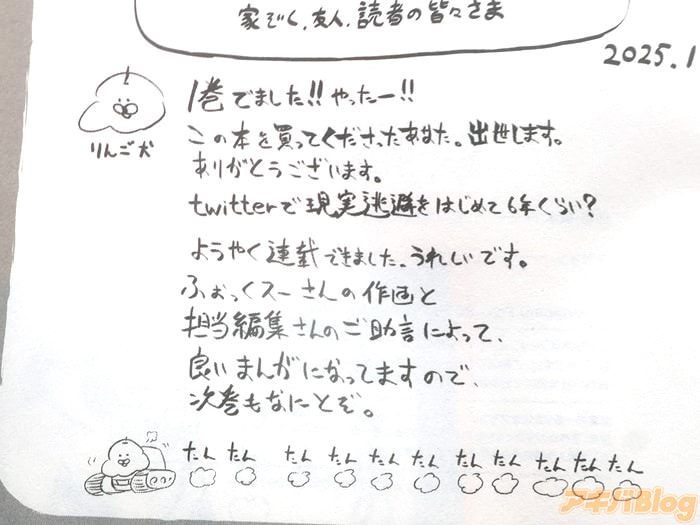 家ぞく、友人、読者の皆々さま
2025.1
1巻でました!!やったー!!
りんご犬
この本を買ってくださったあなた。出世します。
ありがとうございます。
twitterで現実逃避をはじめて6年くらい?
ようやく連載できました。うれしいです。
ふぉっくスーさんの作画と
担当編集さんのご助言によって、
良いまんがになってますので、
次巻もなにとぞ。
たん たん たん たん たん たん たん たん たん たん たん
アキバBlog